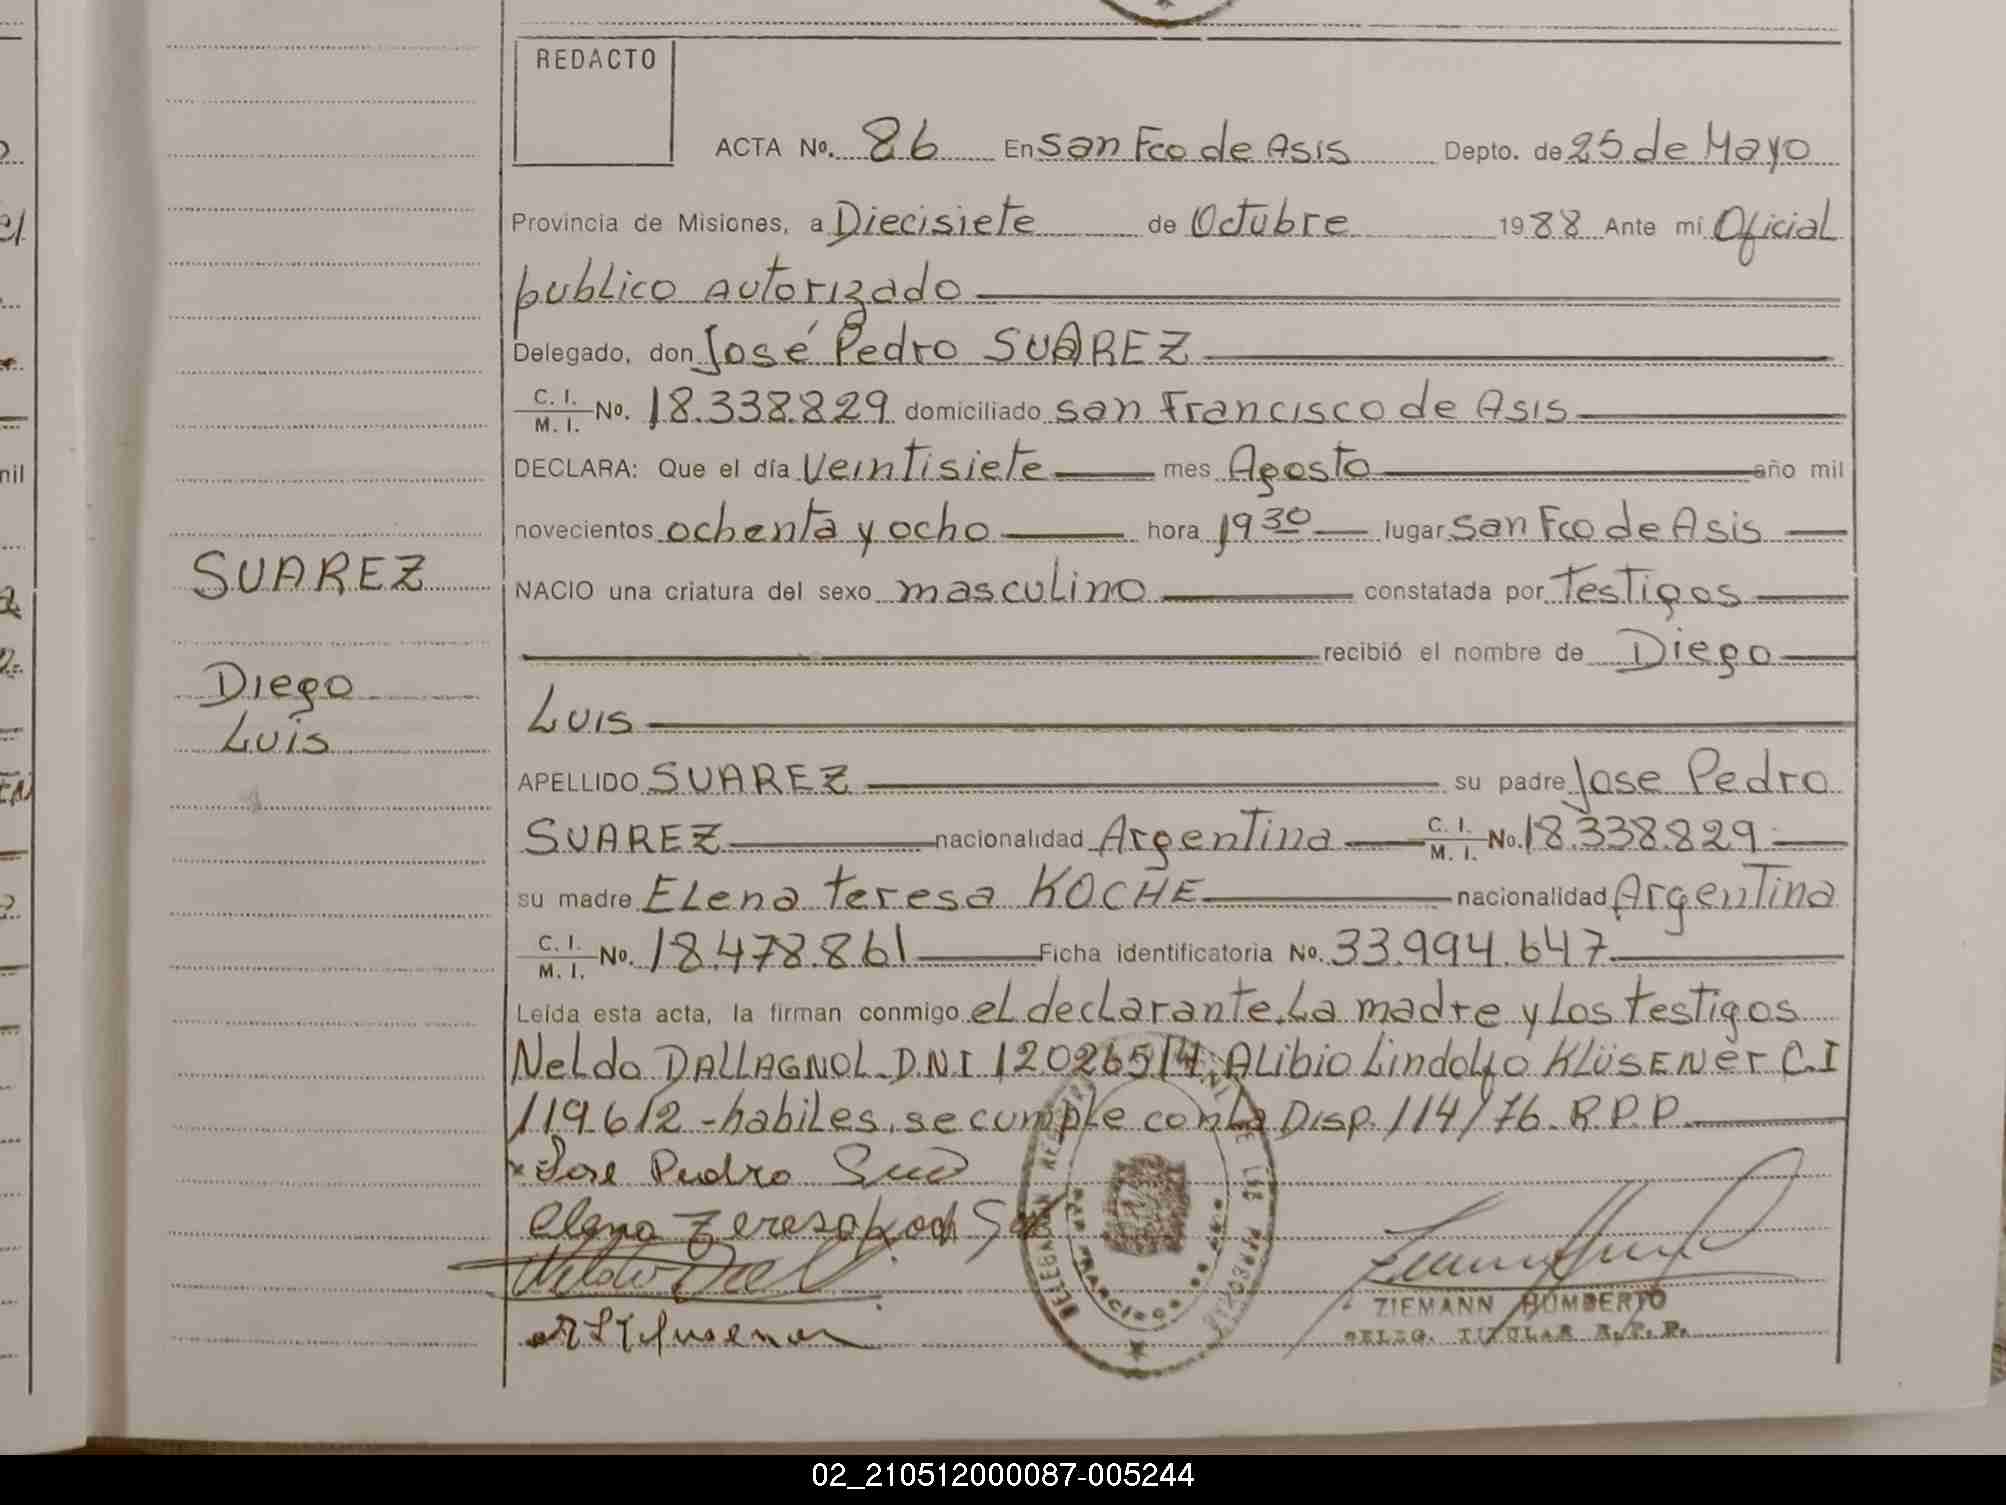 REDACTO
ACTA No. 86 En San Fco de Asis Depto. de 25 de Mayo
Provincia de Misiones, a Diecisiete de Octubre 1988 Ante mí Oficial
publico autorizado
Delegado, don José Pedro SUAREZ
C. I. / M. I. No. 18.338.829 domiciliado San Francisco de Asis
DECLARA: Que el día Veintisiete mes Agosto año mil
novecientos ochenta y ocho hora 19 30 lugar San Fco de Asis
NACIO una criatura del sexo masculino constatada por testigos
recibió el nombre de Diego
Luis
APELLIDO SUAREZ su padre Jose Pedro
SUAREZ nacionalidad Argentina C. I. / M. I. No. 18.338.829
su madre ELena teresa KOCHE nacionalidad Argentina
C. I. / M. I. No. 18.478.861 Ficha identificatoria No. 33.994.647
Leída esta acta, la firman conmigo el declarante, La madre y Los testigos
Neldo DALLAGNOL D.N.I 12026514; ALibio Lindolfo KLÜSENER C.I
119612 - habiles, se cumple con La Disp. 114/76. R.P.P
x Jose Pedro
Elena Teresa
ZIEMANN HUMBERTO
DELEG. TITULAR R.P.P.
SUAREZ
Diego
Luis
nil
02_210512000087-005244